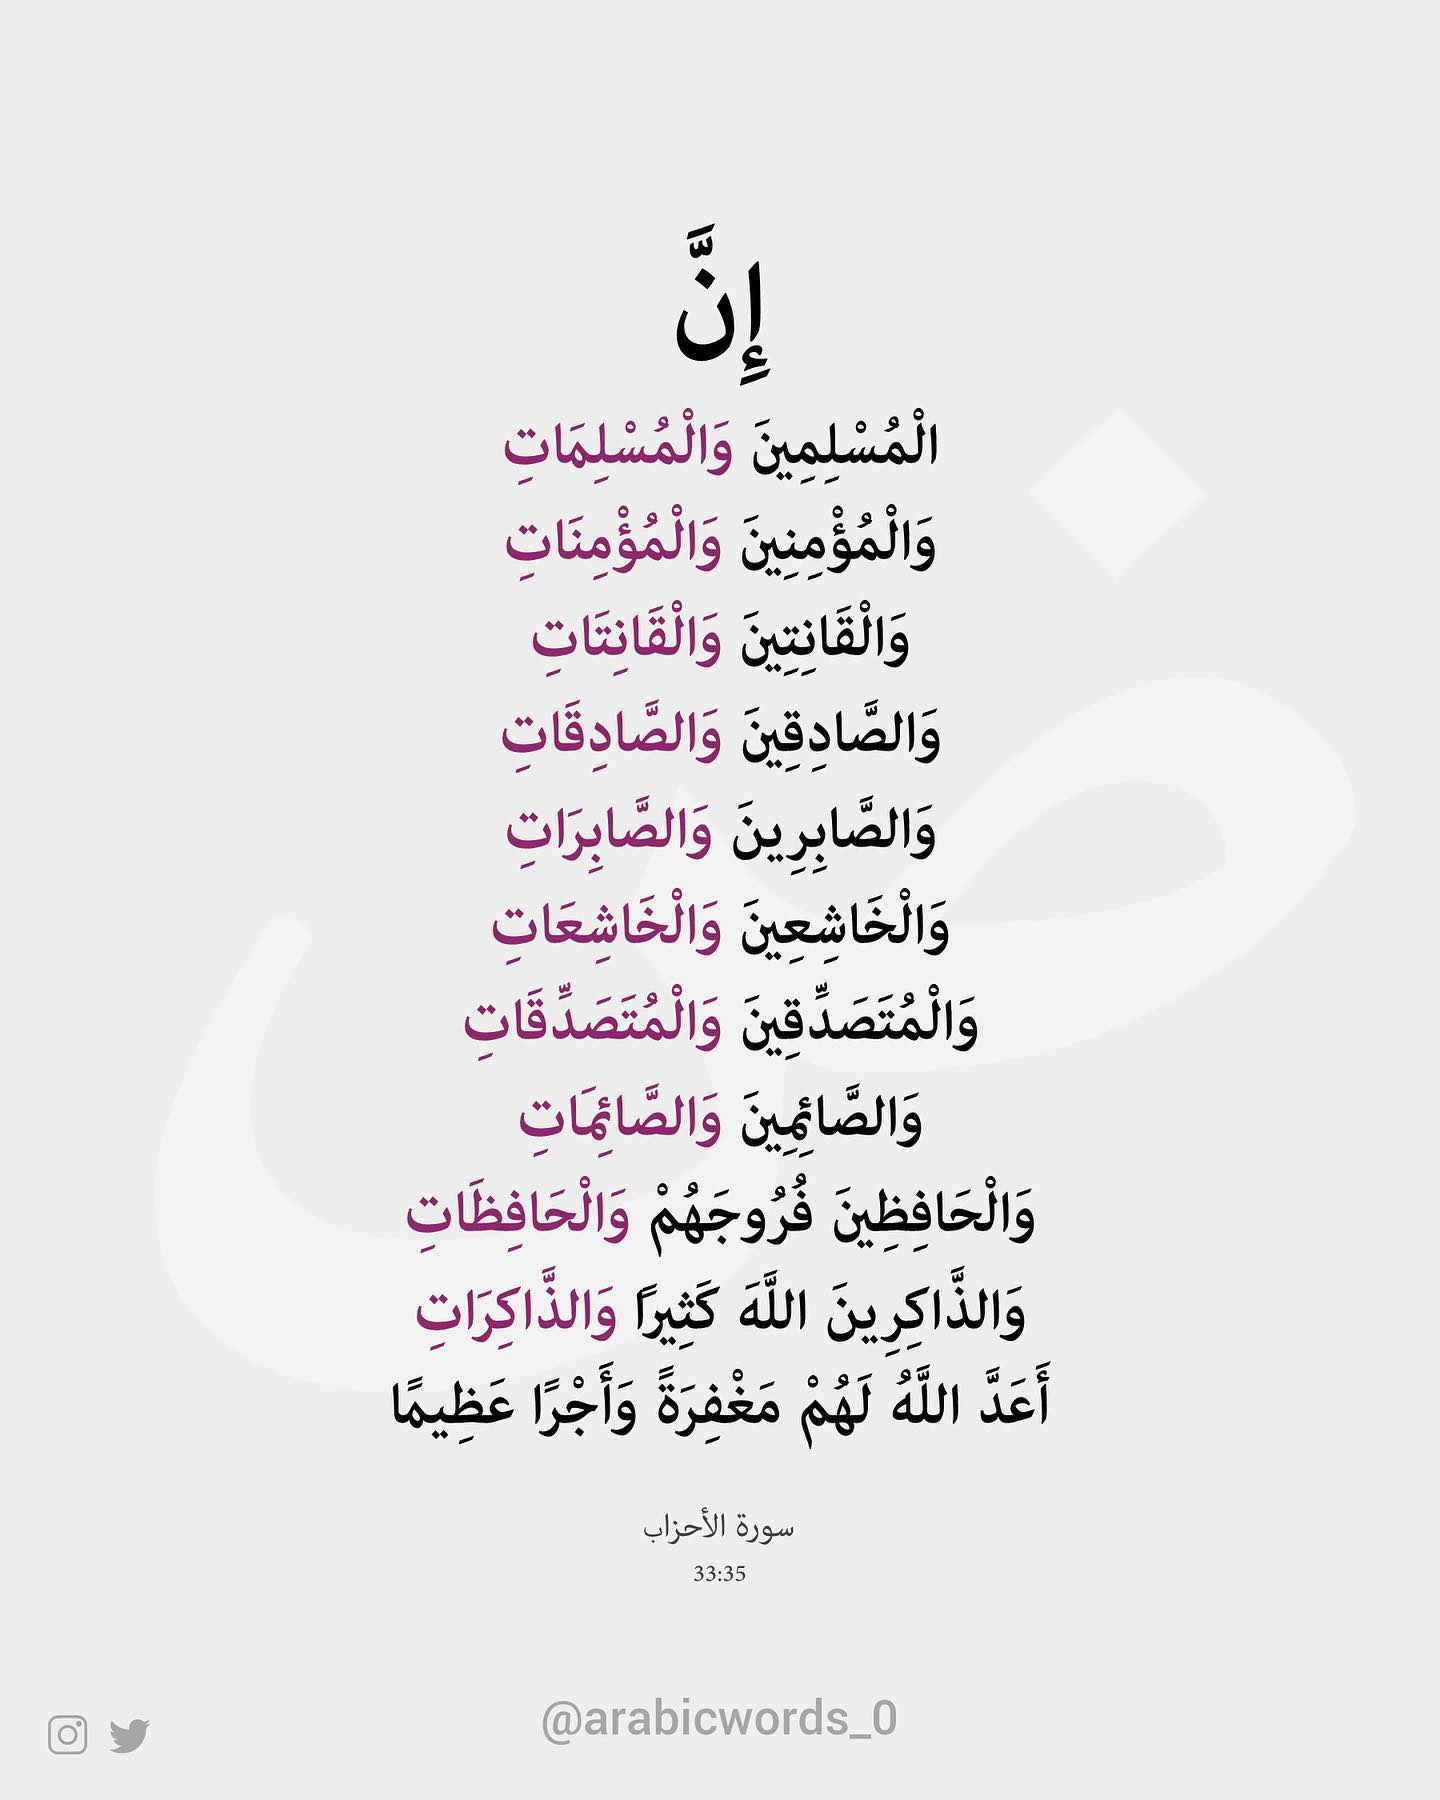 إِنَّ
الْمُسْلِمِينَ وَالْمُسْلِمَاتِ
وَالْمُؤْمِنِينَ وَالْمُؤْمِنَاتِ
وَالْقَانِتِينَ وَالْقَانِتَاتِ
وَالصَّادِقِينَ وَالصَّادِقَاتِ
وَالصَّابِرِينَ وَالصَّابِرَاتِ
وَالْخَاشِعِينَ وَالْخَاشِعَاتِ
وَالْمُتَصَدِّقِينَ وَالْمُتَصَدِّقَاتِ
وَالصَّائِمِينَ وَالصَّائِمَاتِ
وَالْحَافِظِينَ فُرُوجَهُمْ وَالْحَافِظَاتِ
وَالذَّاكِرِينَ اللَّهَ كَثِيرًا وَالذَّاكِرَاتِ
أَعَدَّ اللَّهُ لَهُمْ مَغْفِرَةً وَأَجْرًا عَظِيمًا
سورة الأحزاب
33:35
@arabicwords_0
ض